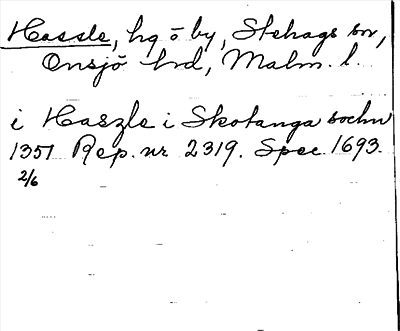 Hassle, hg o by, Stehags sn,
Onsjö hrd, Malm. l.
i Haszle i Skotanga sochn
1351 Rep. nr 2319. Spec 1693.
2/6